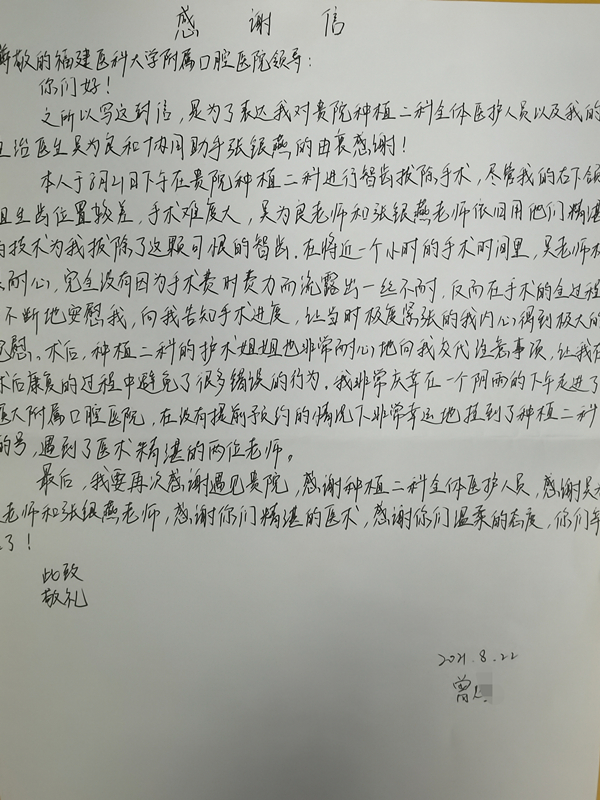 感谢信
敬的福建医科大学附属口腔医院领导：
你们好！
之所以写这封信，是为了表达我对贵院种植二科全体医护人员以及我的
治医生吴为良和协同助手张银燕的由衷感谢！
本人于8月21日下午在贵院种植二科进行智齿拔除手术，尽管我的右下颌
阻生齿位置较差，手术难度大，吴为良老师和张银燕老师依旧用他们精湛
的技术为我拔除了这颗可恨的智齿。在将近一个小时的手术时间里，吴老师
耐心，完全没有因为手术费时费力而流露出一丝不耐，反而在手术的全过程
不断地安慰我，向我告知手术进度，让当时极度紧张的我内心得到极大的
慰。术后，种植二科的护士姐姐也非常耐心地向我交代注意事项，让我在
术后康复的过程中避免了很多错误的行为。我非常庆幸在一个阴雨的下午走进了
医大附属口腔医院，在没有提前预约的情况下非常幸运地挂到了种植二科
的号，遇到了医术精湛的两位老师。
最后，我要再次感谢遇见贵院，感谢种植二科全体医护人员，感谢吴
老师和张银燕老师，感谢你们精湛的医术，感谢你们温柔的态度，你们辛
了！
此致
敬礼
2021.8.22
曾